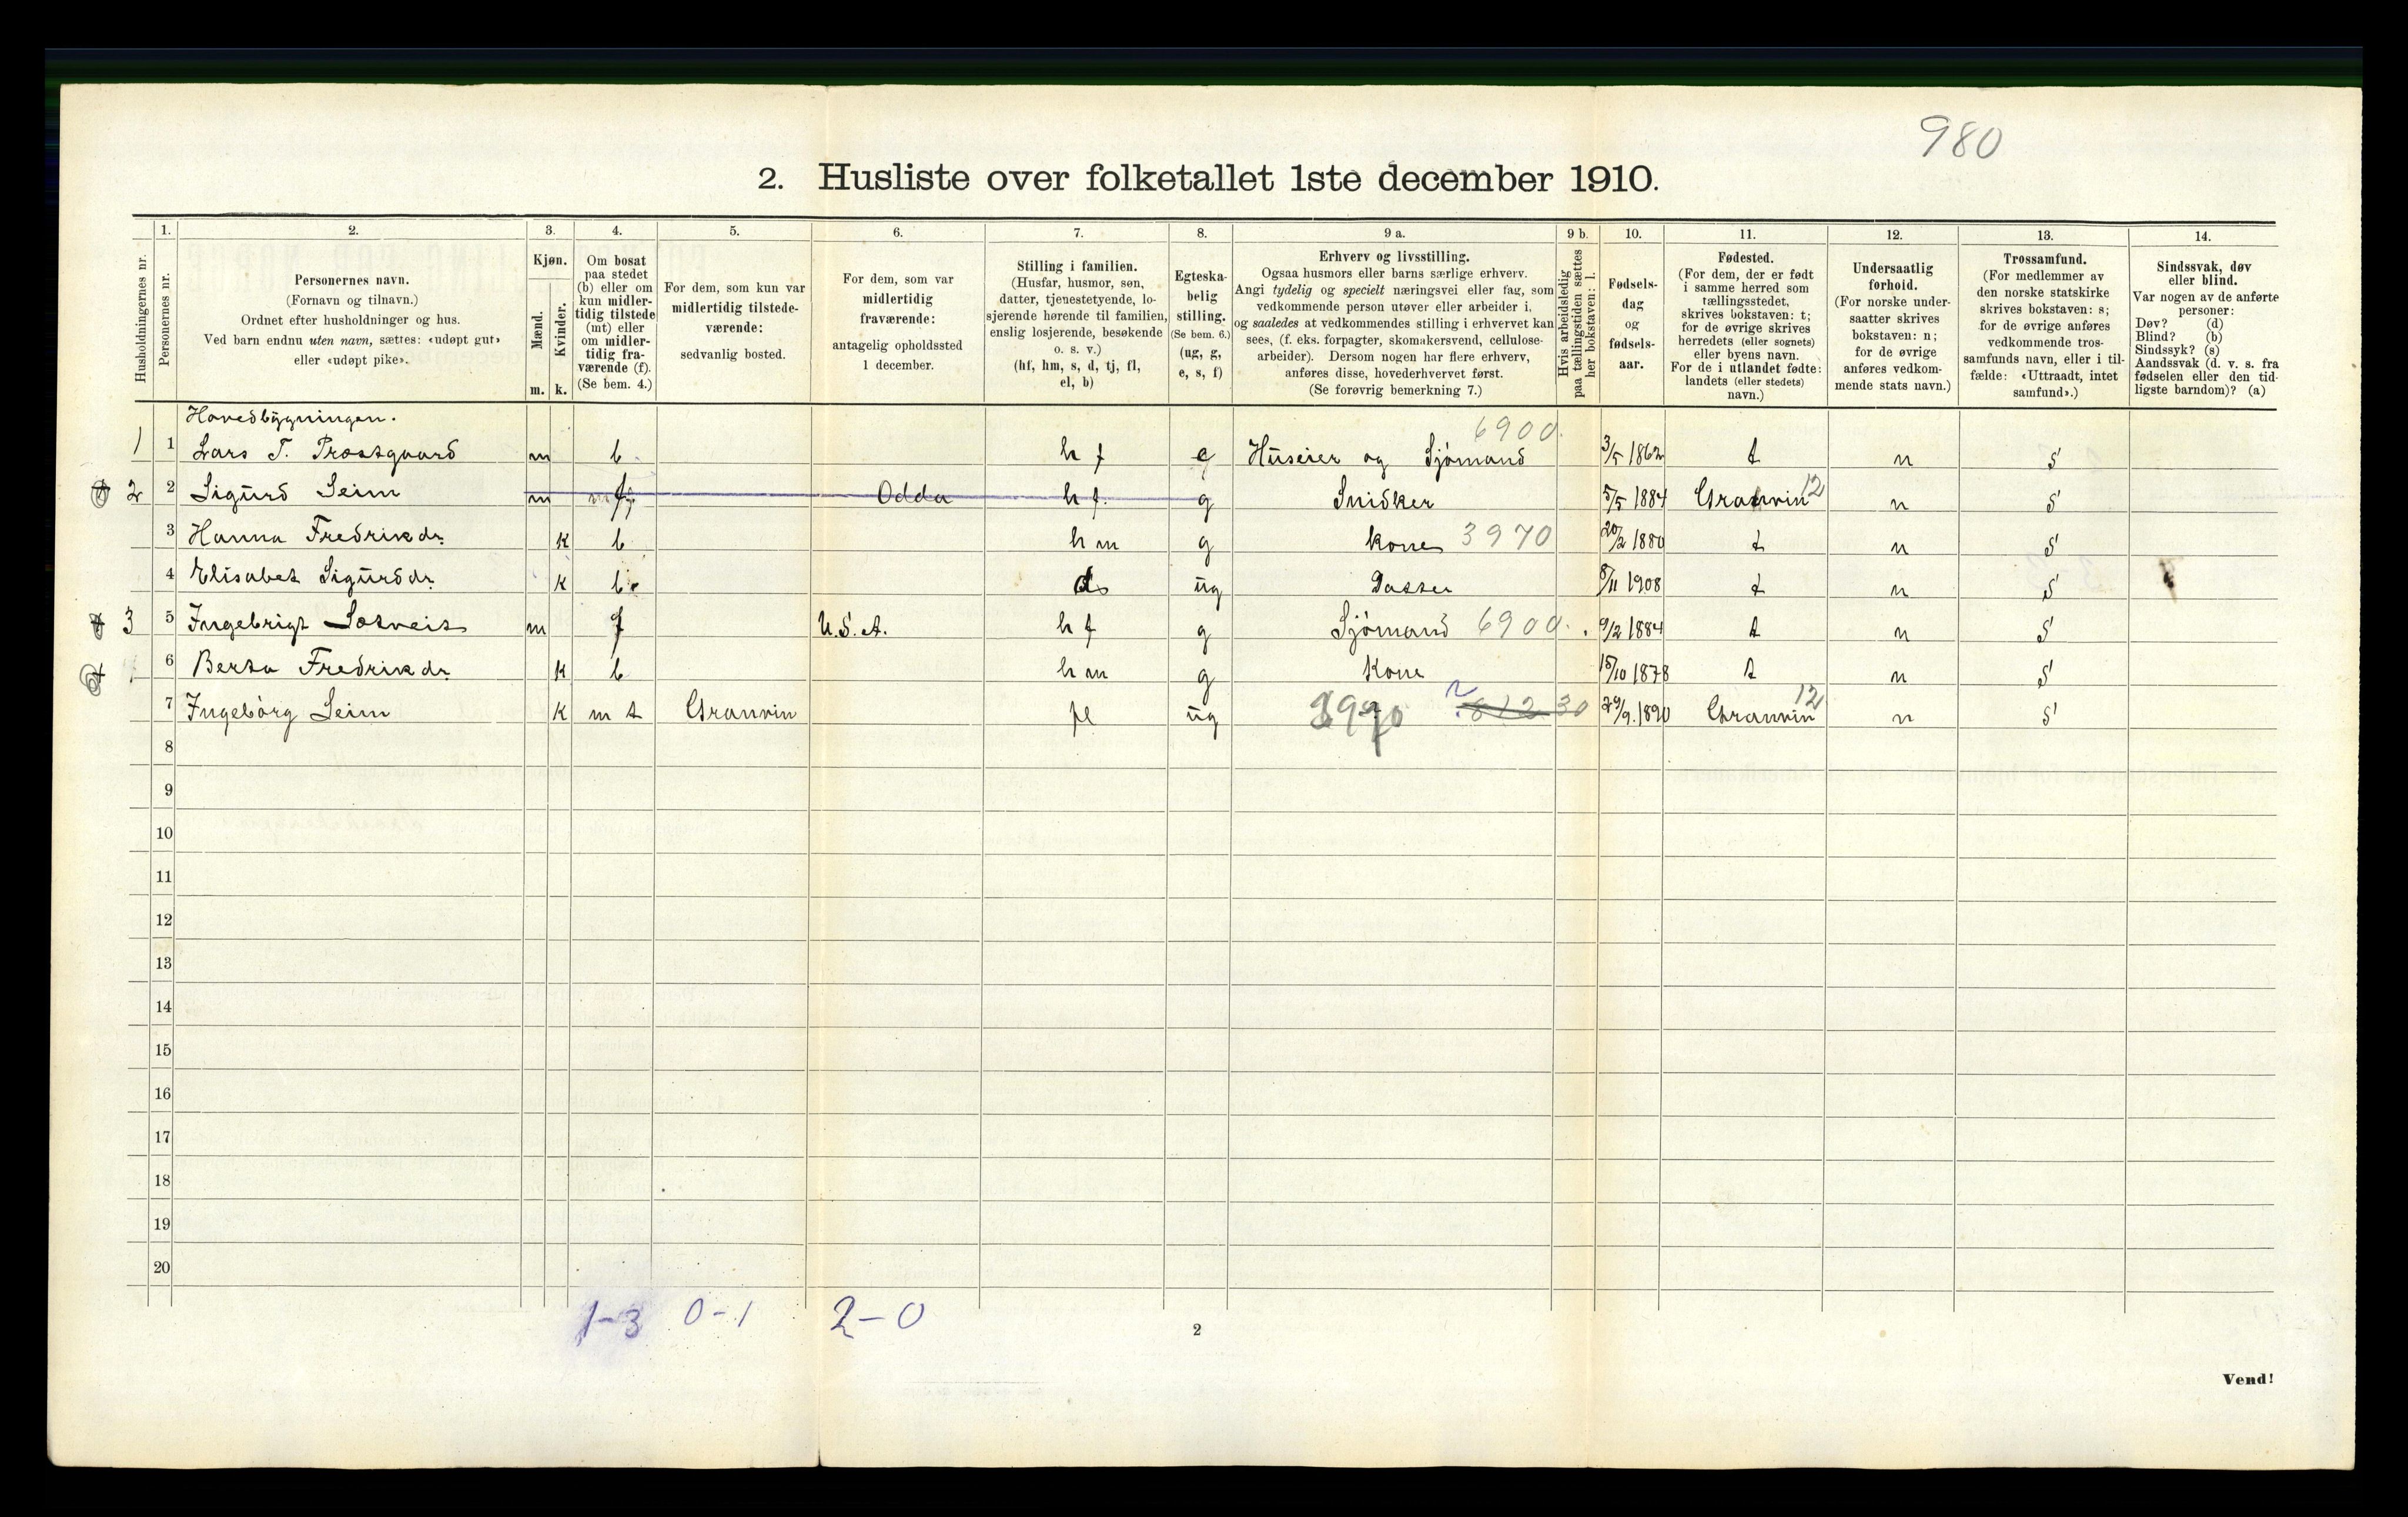 980
2. Husliste over folketallet 1ste december 1910.
Husholdningernes nr.
1. Personernes nr.
2. Personernes navn.
(Fornavn og tilnavn.)
Ordnet efter husholdninger og hus.
Ved barn endnu uten navn, sættes: «udøpt gut»
eller «udøpt pike».
3. Kjøn.
Mænd. m.
Kvinder. k.
4. Om bosat
paa stedet
(b) eller om
kun midler-
tidig tilstede
(mt) eller
om midler-
tidig fra-
værende (f).
(Se bem. 4.)
5. For dem, som kun var
midlertidig tilstede-
værende:
sedvanlig bosted.
6. For dem, som var
midlertidig
fraværende:
antagelig opholdssted
1 december.
7. Stilling i familien.
(Husfar, husmor, søn,
datter, tjenestetyende, lo-
sjerende hørende til familien,
enslig losjerende, besøkende
o. s. v.)
(hf, hm, s, d, tj, fl,
el, b)
8. Egteska-
belig
stilling.
(Se bem. 6.)
(ug, g,
e, s, f)
9 a. Erhverv og livsstilling.
Ogsaa husmors eller barns særlige erhverv.
Angi tydelig og specielt næringsvei eller fag, som
vedkommende person utøver eller arbeider i,
og saaledes at vedkommendes stilling i erhvervet kan
sees, (f. eks. forpagter, skomakersvend, cellulose-
arbeider). Dersom nogen har flere erhverv,
anføres disse, hovederhvervet først.
(Se forøvrig bemerkning 7.)
9 b. Hvis arbeidsledig
paa tællingstiden sættes
her bokstaven: l.
10. Fødsels-
dag
og
fødsels-
aar.
11. Fødested.
(For dem, der er født
i samme herred som
tællingsstedet,
skrives bokstaven: t;
for de øvrige skrives
herredets (eller sognets)
eller byens navn.
For de i utlandet fødte:
landets (eller stedets)
navn.)
12. Undersaatlig
forhold.
(For norske under-
saatter skrives
bokstaven: n;
for de øvrige
anføres vedkom-
mende stats navn.)
13. Trossamfund.
(For medlemmer av
den norske statskirke
skrives bokstaven: s;
for de øvrige anføres
vedkommende tros-
samfunds navn, eller i til-
fælde: «Uttraadt, intet
samfund».)
14. Sindssvak, døv
eller blind.
Var nogen av de anførte
personer:
Døv? (d)
Blind? (b)
Sindssyk? (s)
Aandssvak (d. v. s. fra
fødselen eller den tid-
ligste barndom)? (a)
Hovedbygningen.
1 1 Lars T. Prostgaard m b hf e Huseier og Sjömand 6900 3/5 1862 t n S
2 2 Sigurd Seim m f Odda hf g Snidker 5/5 1884 Granvin 12 n S
3 Hanna Fredrikdr. k b hm g kone 3970 20/2 1880 t n S
4 Elisabet Sigurddr. k b d ug Datter 8/11 1908 t n S
3 5 Ingebrigt Sotveit m f U.S.A. hf g Sjömand 6900 9/2 1884 t n S
6 Berta Fredrikdr. k b hm g Kone 15/10 1878 t n S
7 Ingebörg Seim k mt Granvin fl ug 29/9.1890 Granvin 12 n S
8
9
10
11
12
13
14
15
16
17
18
19
20
1-3 0-1 2-0
2
Vend!